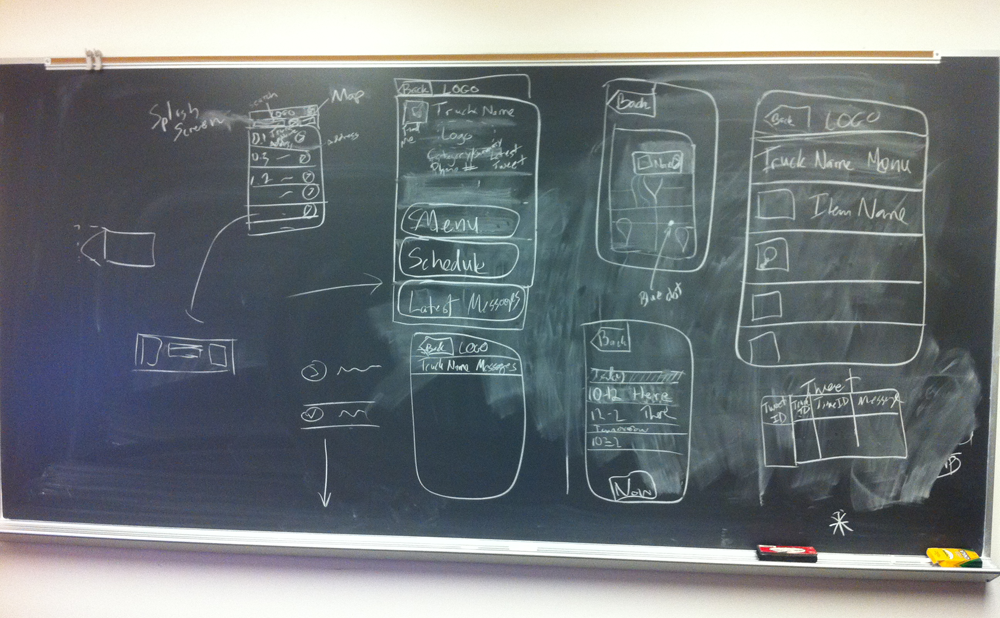 Splash
Screen
search
Map
LOGO
address
0.1
0.3
1.2
Back LOGO
Truck Name
Logo
Category
Latest
Phone #
Tweet
Menu
Schedule
Latest Messages
Back LOGO
Truck Name Messages
Back
Blue dot
Back
Today
10-12 Here
12-2 There
Tomorrow
10-2
Now
Back LOGO
Truck Name Menu
Item Name
Tweet
Tweet ID
Truck ID
TimeID
Message